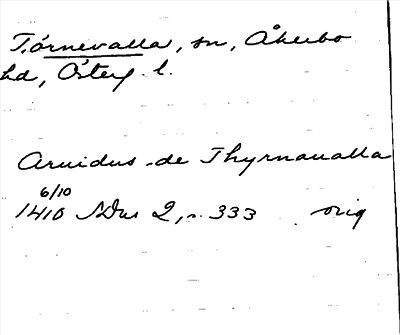 Törnevalla, sn, Åkerbo
hd, Österg. l.
Aruidus de Thyrnaualla
6/10
1410 SDns 2, s. 333 orig